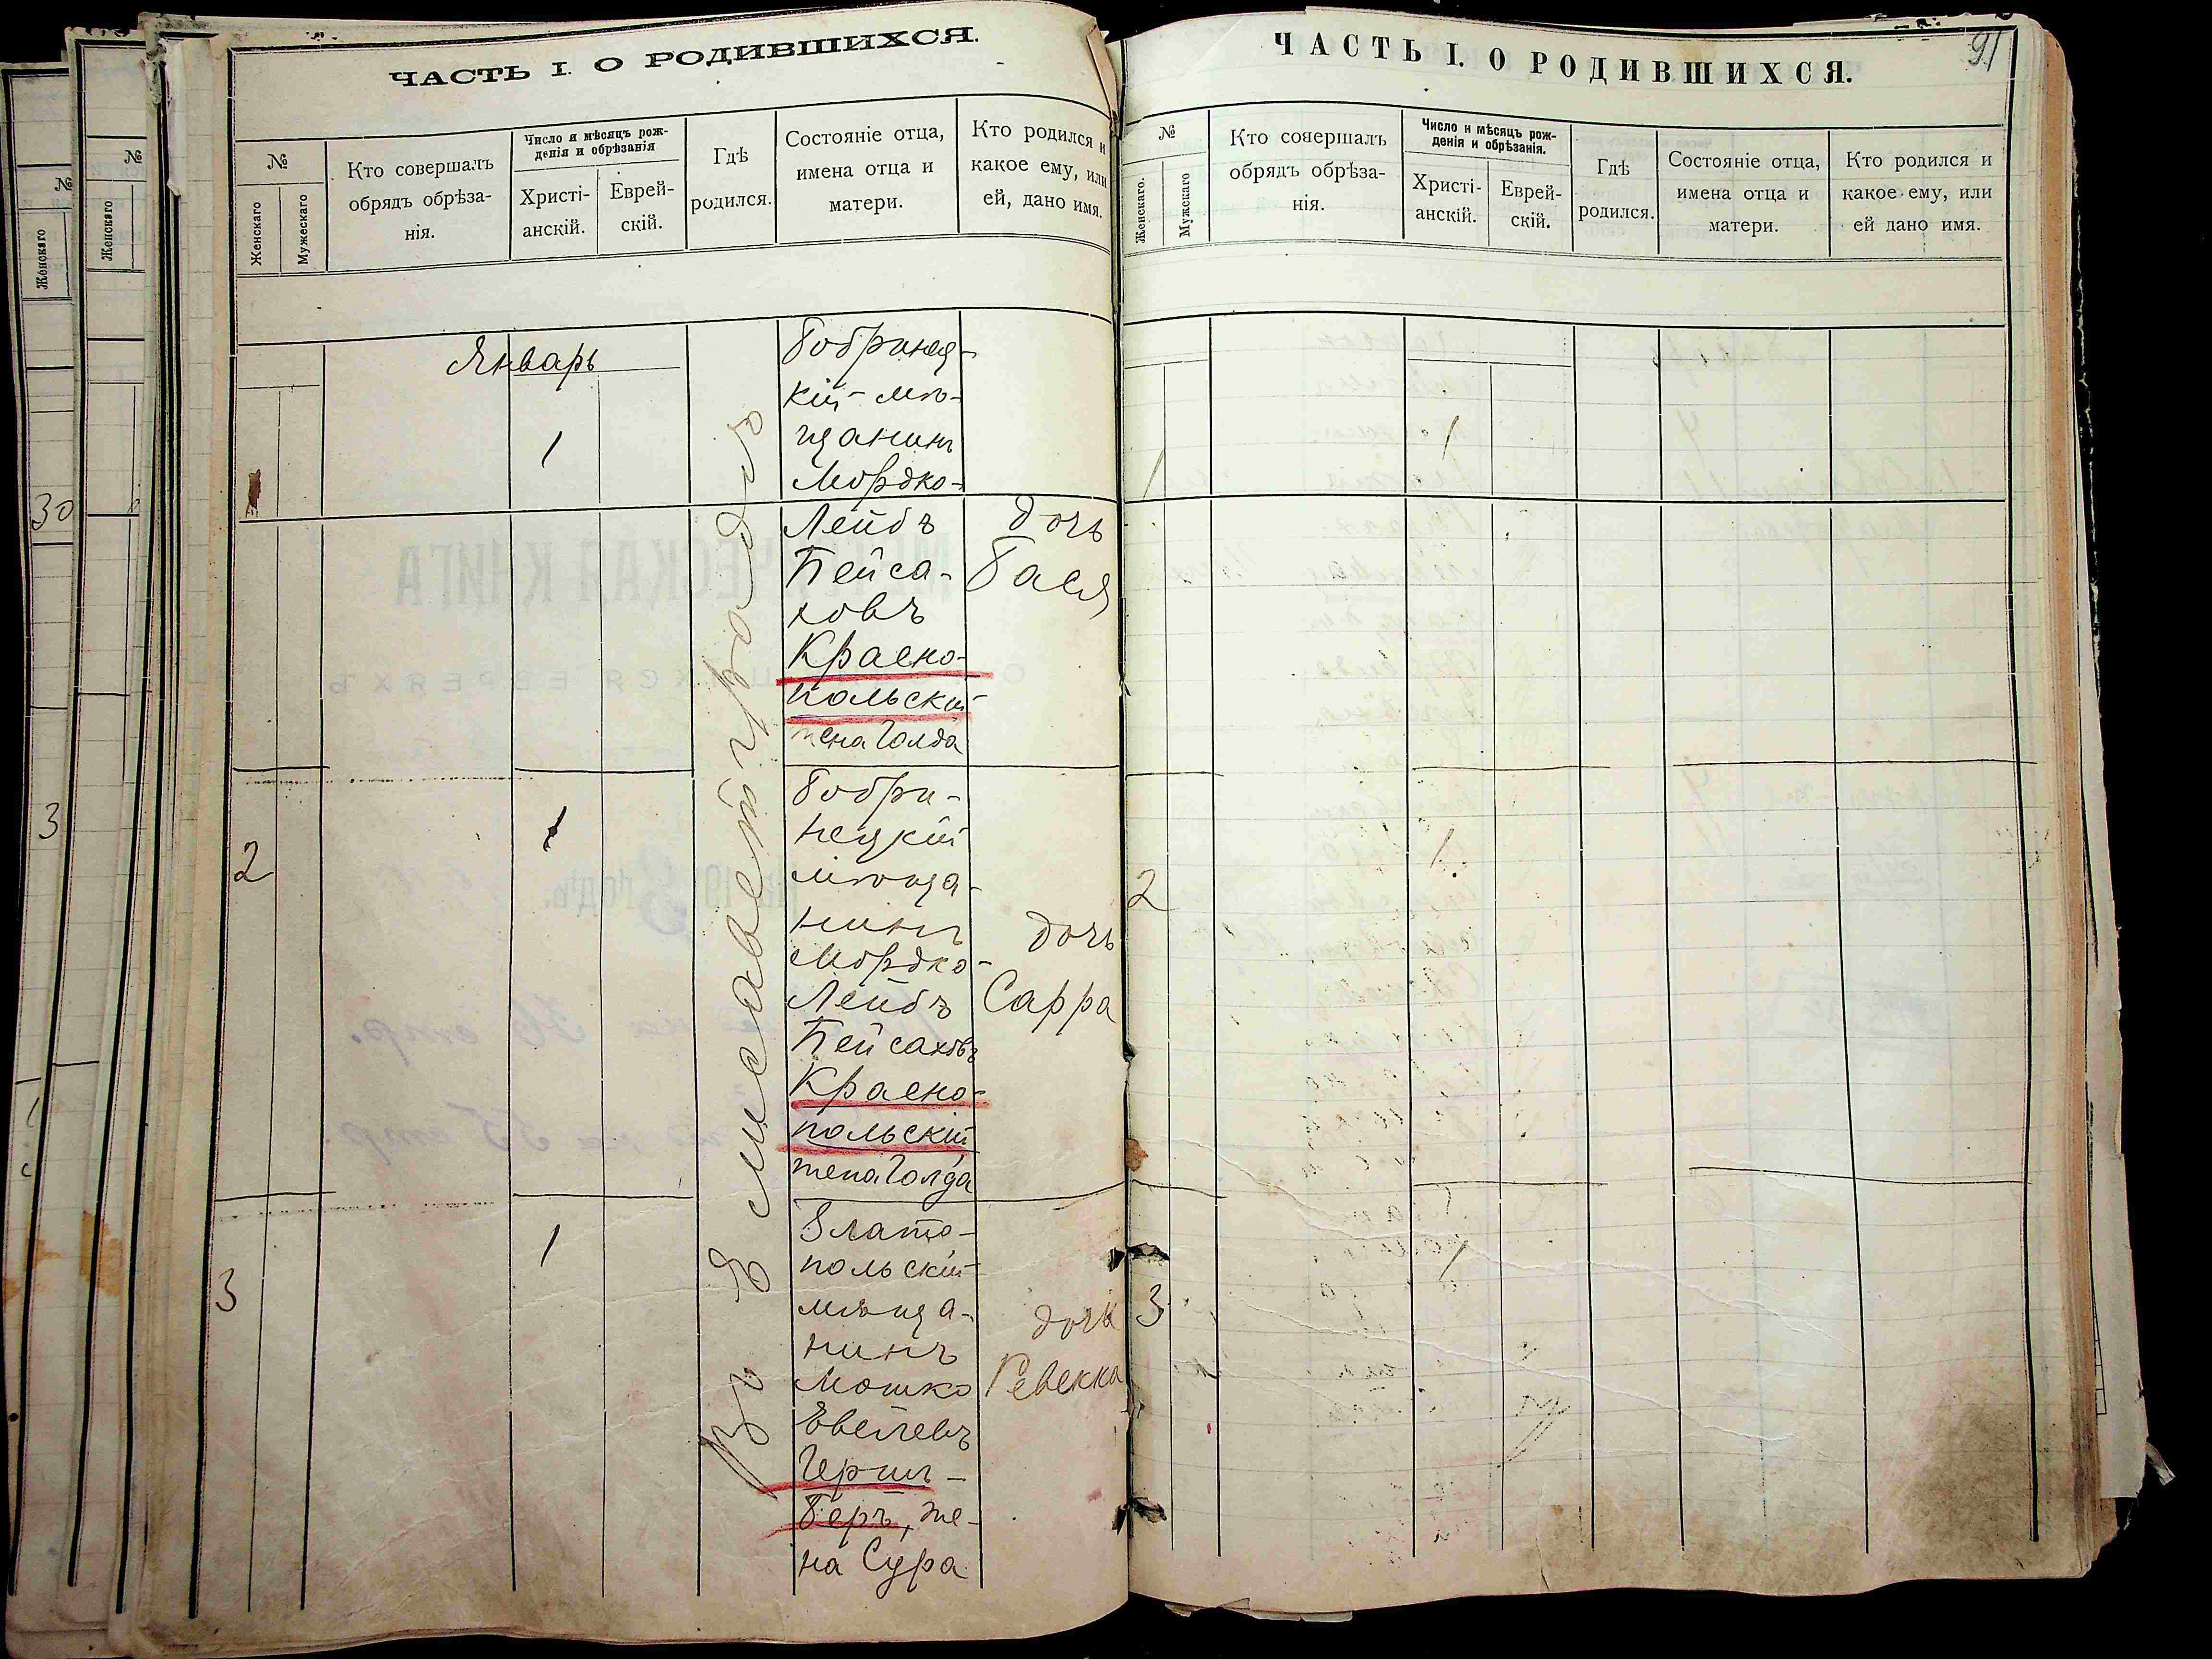 ЧАСТЬ I. О РОДИВШИХСЯ.
№
Женскаго
Мужескаго
Кто совершалъ
обрядъ обрѣза-
нія.
Число и мѣсяцъ рож-
денія и обрѣзанія
Христі-
анскій.
Еврей-
скій.
Гдѣ
родился.
Состояніе отца,
имена отца и
матери.
Кто родился и
какое ему, или
ей, дано имя.
Январь
1
Въ Елисаветградѣ
Бобринец-
кій мѣ-
щанинъ
Мордко-
Лейбъ
Пейса-
ховъ
Красно-
польскій
жена Голда
дочь
Бася
2
1
Бобри-
нецкій
мѣща-
нинъ
Мордко-
Лейбъ
Пейсаховъ
Красно-
польскій
жена Голда
дочь
Сарра
3
1
Злато-
польскій
мѣща-
нинъ
Мошко
Герш-
беръ, же-
на Сура
дочь
Ревекка
ЧАСТЬ I. О РОДИВШИХСЯ.
91
№
Женскаго.
Мужскаго
Кто совершалъ
обрядъ обрѣза-
нія.
Число и мѣсяцъ рож-
денія и обрѣзанія.
Христі-
анскій.
Еврей-
скій.
Гдѣ
родился.
Состояніе отца,
имена отца и
матери.
Кто родился и
какое ему, или
ей дано имя.
1
1
2
1
3
1
№
Женскаго
30
3
№
Женскаго